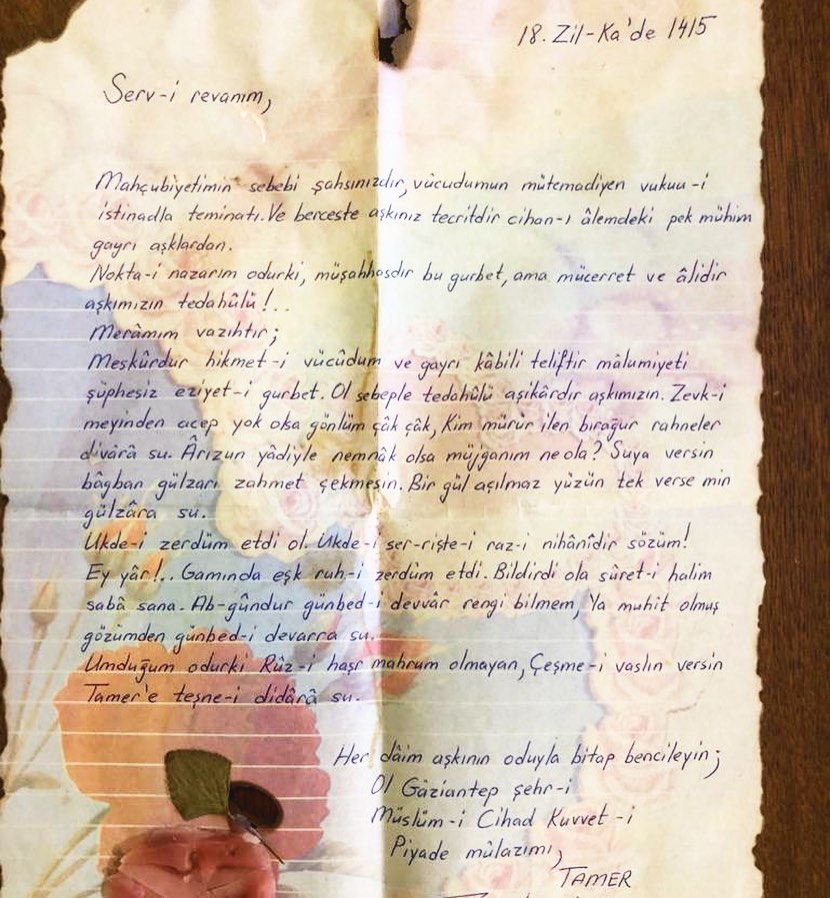 18. Zil-Ka'de 1415
Serv-i revanım,
Mahçubiyetimin sebebi şahsınızdır, vücudumun mütemadiyen vukuu-i
istinadla teminatı. Ve berceste aşkınız tecritdir cihan-ı âlemdeki pek mühim
gayrı aşklardan.
Nokta-i nazarım odurki, müşahhasdır bu gurbet, ama mücerret ve âlidir
aşkımızın tedahûlü!..
Merâmım vazıhtır;
Meskûrdur hikmet-i vücûdum ve gayrı kâbili teliftir mâlumiyeti
şüphesiz eziyet-i gurbet. Ol sebeple tedahûlü aşikârdır aşkımızın. Zevk-i
meyinden acep yok olsa gönlüm çâk çâk, Kim mürur ilen bırağur rahneler
dîvârâ su. Ârızun yâdiyle nemnâk olsa müjganım ne ola? Suya versin
bâgban gülzarı zahmet çekmesin. Bir gül açılmaz yüzün tek verse min
gülzâra su.
Ukde-i zerdüm etdi ol. Ukde-i ser-rişte-i raz-i nihânîdir sözüm!
Ey yâr!.. Gamında eşk ruh-i zerdüm etdi. Bildirdi ola sûret-i halim
sabâ sana. Ab-gûndur günbed-i devvâr rengi bilmem, Ya muhit olmuş
gözümden günbed-i devarra su.
Umduğum odurki Rûz-i haşr mahrum olmayan, Çeşme-i vaslın versin
Tamer'e teşne-i didârâ su.
Her dâim aşkının oduyla bitap bencileyin;
Ol Gâziantep şehr-i
Müslüm-i Cihad Kuvvet-i
Piyade mülazımı,
TAMER